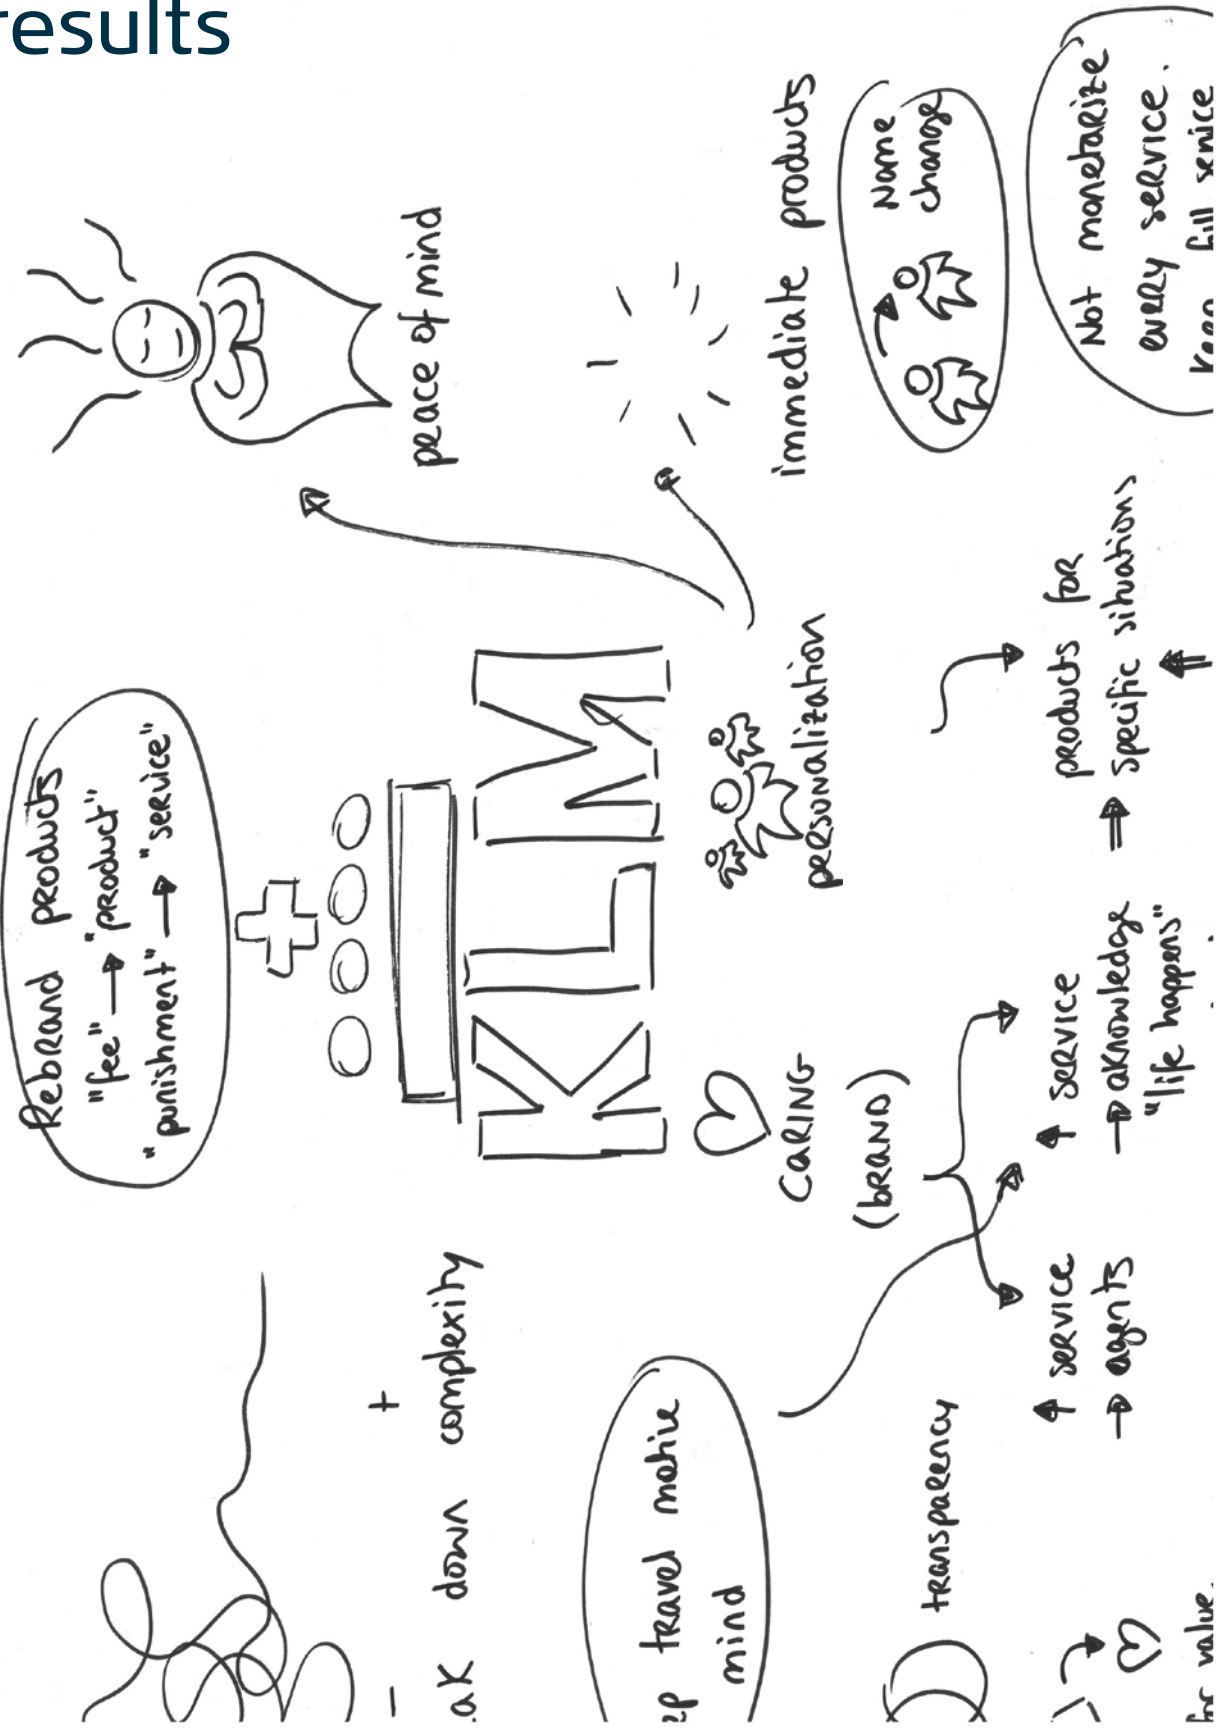 results
Rebrand products
"fee" → "product"
"punishment" → "service"
+
KLM
peace of mind
immediate products
Name
change
Not monetarize
every service.
Keep full service
personalization
CARING
(BRAND)
products for
⇒ specific situations
↑ service
→ aknowledge
"life happens"
↑ service
→ agents
- +
down complexity
travel motive
mind
transparency
for value.